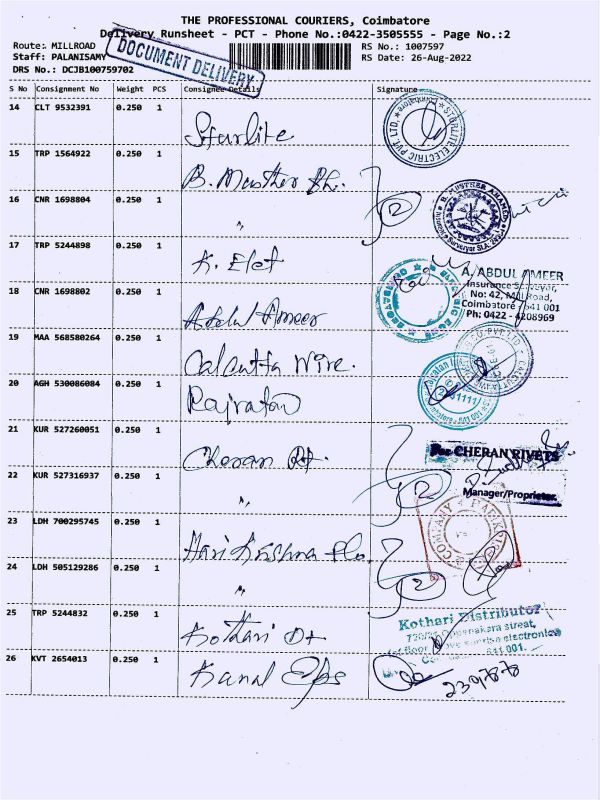 THE PROFESSIONAL COURIERS, Coimbatore
Delivery Runsheet - PCT - Phone No.:0422-3505555 - Page No.:2
Route: MILLROAD
RS No.: 1007597
Staff: PALANISAMY
RS Date: 26-Aug-2022
DRS No.: DCJB100759702
DOCUMENT DELIVERY
S No Consignment No Weight PCS Consignee Details Signature
14 CLT 9532391 0.250 1
Starlite
STARLITE ELECTRIC PVT. LTD. Coimbatore
15 TRP 1564922 0.250 1
B. Musther Ah.
16 CNR 1698804 0.250 1
〃
2
B. MUSTHER AHAMED
17 TRP 5244898 0.250 1
K. Elet
18 CNR 1698802 0.250 1
Abdul Ameer
A, ABDUL AMEER
Insurance Surveyor,
No: 42, Mill Road,
Coimbatore - 641 001
Ph; 0422 - 4208969
19 MAA 568580264 0.250 1
Calcutta Wire.
20 AGH 530086084 0.250 1
Rajratan
21 KUR 527260051 0.250 1
Cheran Rt.
For CHERAN RIVETS
22 KUR 527316937 0.250 1
〃
2
Manager/Proprietor
23 LDH 700295745 0.250 1
Hari Krishna
24 LDH 505129286 0.250 1
〃
2
25 TRP 5244832 0.250 1
Kothari Dt
Kothari Distributor
street,
electronics
641 001.
26 KVT 2654013 0.250 1
Kanal